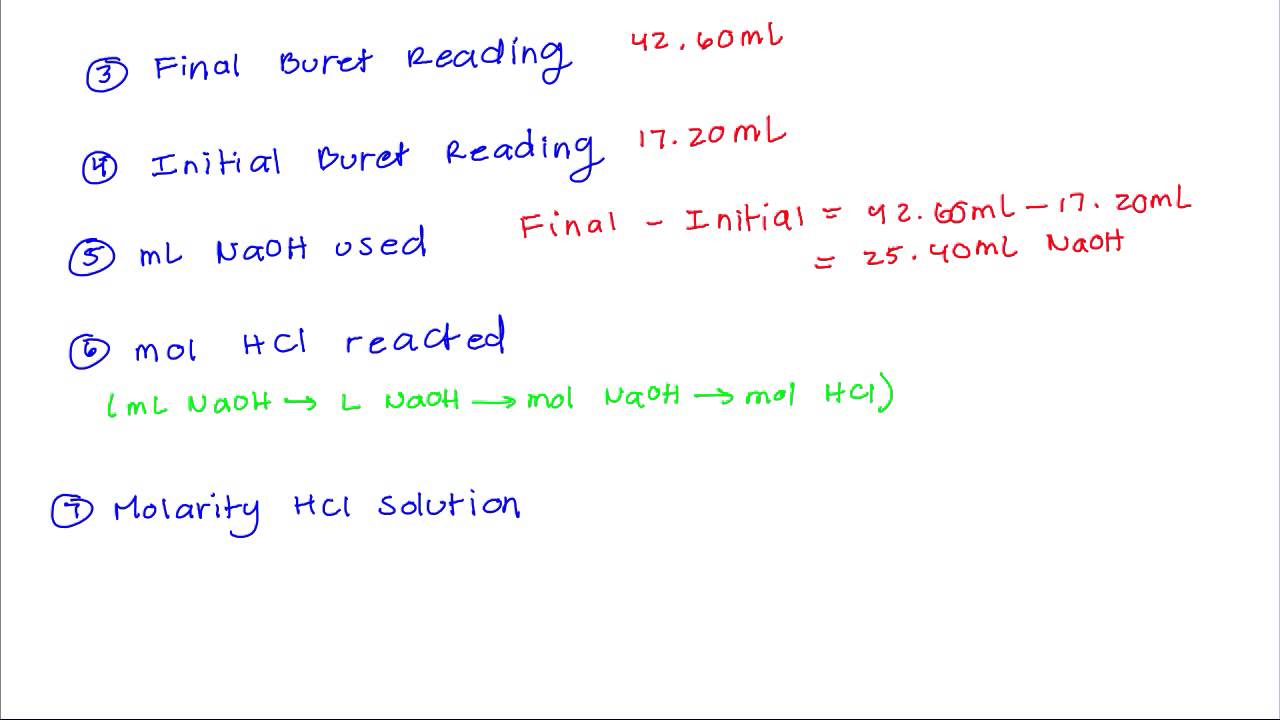 ③ Final Buret Reading 42.60mL
④ Initial Buret Reading 17.20mL
⑤ mL NaOH used Final - Initial = 42.60mL - 17.20mL
= 25.40mL NaOH
⑥ mol HCl reacted
(mL NaOH → L NaOH → mol NaOH → mol HCl)
⑦ Molarity HCl solution